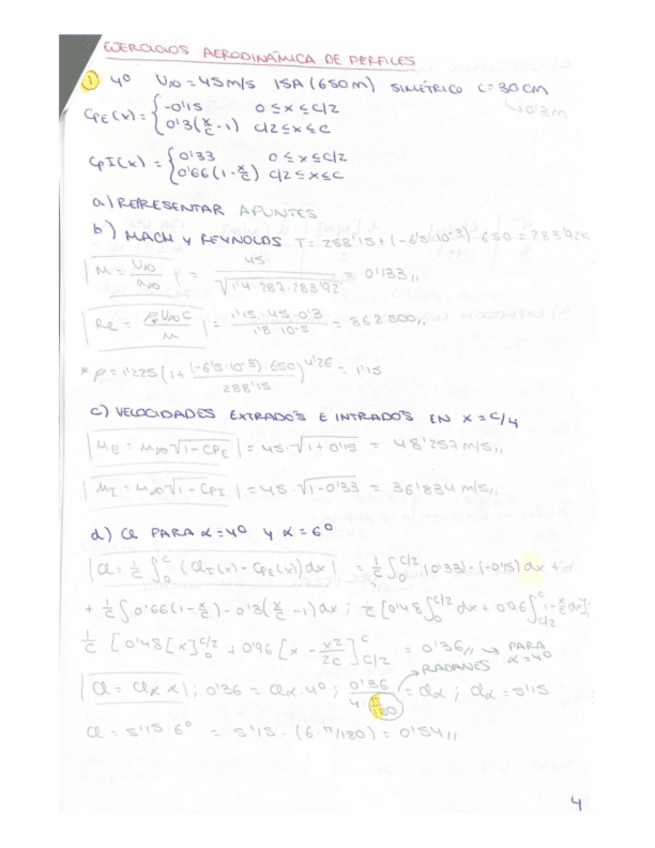 EJERCICIOS AERODINÁMICA DE PERFILES
① 4º U∞ = 45 m/s ISA (650 m) SIMÉTRICO C = 30 cm
↳ 0'3m
CpE(x) = { -0'15 0 ≤ x ≤ c/2
0'3(x/c - 1) c/2 ≤ x ≤ c
CpI(x) = { 0'33 0 ≤ x ≤ c/2
0'66(1 - x/c) c/2 ≤ x ≤ c
a) REPRESENTAR APUNTES
b) MACH Y REYNOLDS T = 288'15 + (-6'5·10⁻³)·650 = 283'92K
| M = U∞/a∞ | = 45/√(1'4·287·283'92) = 0'133,,
| Re = ρ∞U∞C/μ | = 1'15·45·0'3/1'8·10⁻⁵ = 862.500,,
* ρ = 1'225 (1 + (-6'5·10⁻³)·650/288'15)^4'26 = 1'15
c) VELOCIDADES EXTRADÓS E INTRADÓS EN X = C/4
| μE = μ∞√(1 - CPE) | = 45·√(1 + 0'15) = 48'257 m/s,,
| μI = μ∞√(1 - CPI) | = 45·√(1 - 0'33) = 36'834 m/s,,
d) Cl PARA α = 4º Y α = 6º
| Cl = 1/c ∫₀^c (ClI(x) - CPE(x)) dx | = 1/c ∫₀^c/2 (0'33) - (-0'15) dx +
+ 1/c ∫ 0'66(1 - x/c) - 0'3(x/c - 1) dx ; 1/c [0'48 ∫₀^c/2 dx + 0'96 ∫_c/2^c 1 - x/c dx];
1/c [0'48 [x]₀^c/2 + 0'96 [x - x²/2c]_c/2^c = 0'36,, → PARA α = 4º
→ RADIANES
| Cl = Clα α | ; 0'36 = Clα · 4º ; 0'36/4·π/180 = Clα ; Clα = 5'15
Cl = 5'15 · 6º = 5'15 · (6·π/180) = 0'54,,
4